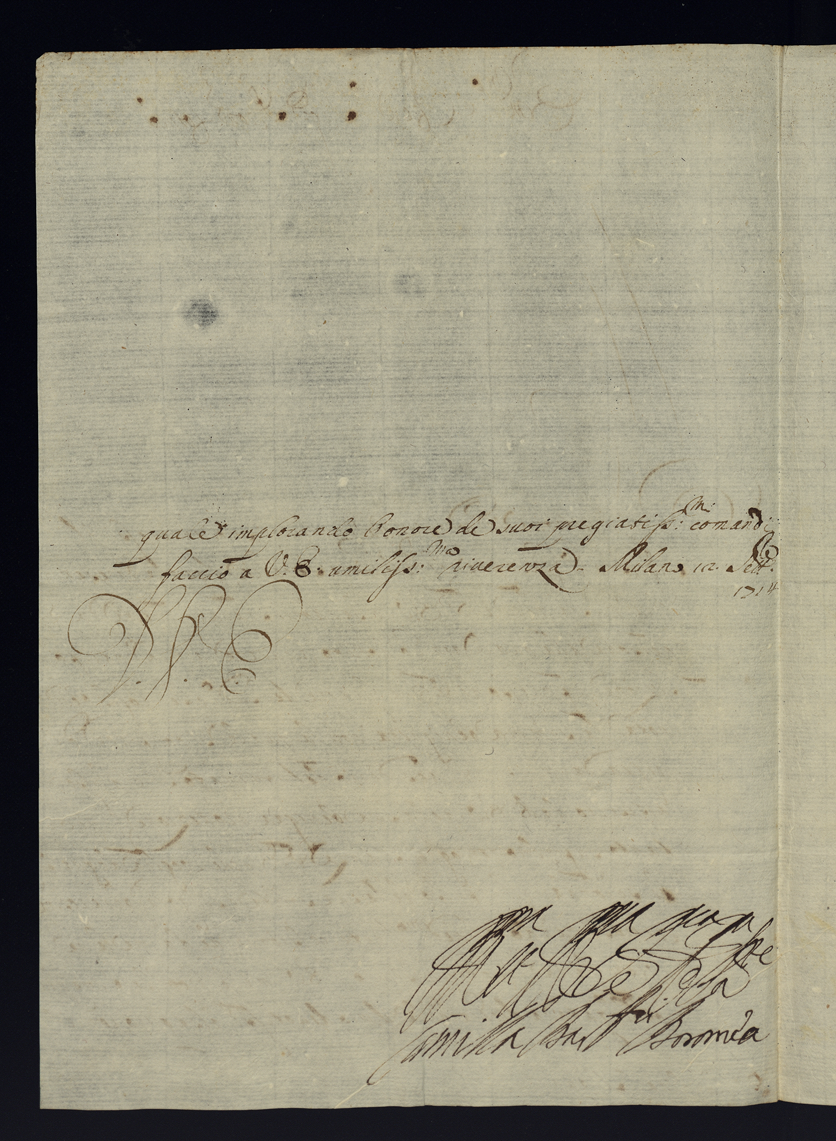 quale implorando l'onore de suoi pregiatiss:mi comandi
faccio a V.E. umiliss:ma riverenza. Milano 12 Sett.
1714
D. V. E.
Camilla Bar.ni Boromea